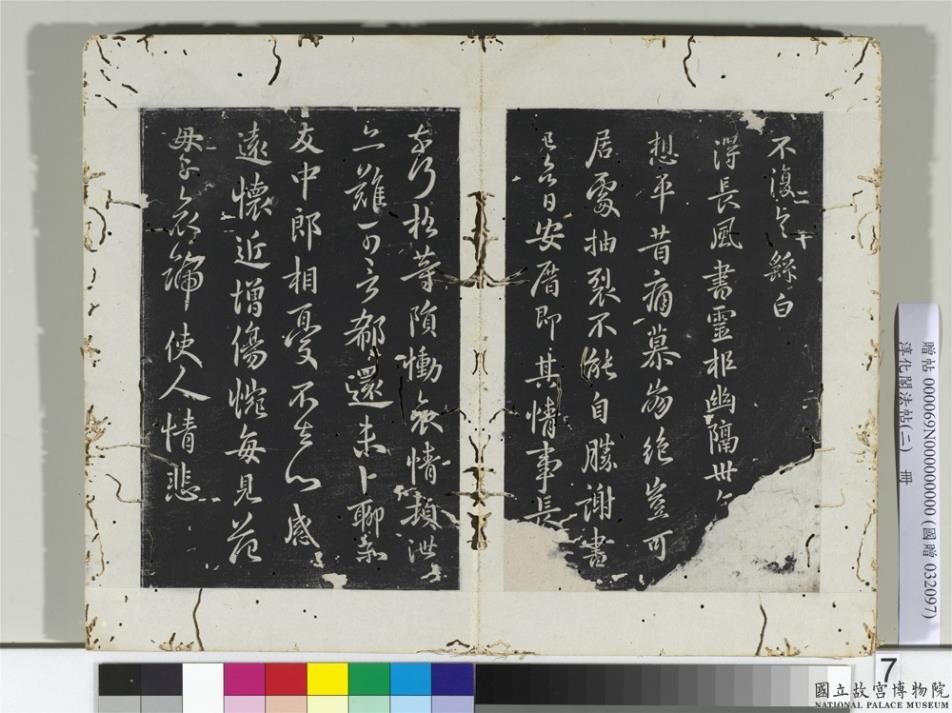 不復之繇白
得長風書靈柩幽隔卅年
想平昔痛慕崩絕豈可
居處抽裂不能自勝謝書
已令日安厝即其情事長
奈何松等隕慟哀情頓泄
亦難可言郗還未卜聊示
友中郎相憂不去心感
遠懷近增傷惋每見范
母子哀號使人情悲
贈帖 000069N000000000 (國贈 032097)
淳化閣法帖(二) 冊
7
國立故宮博物院
NATIONAL PALACE MUSEUM